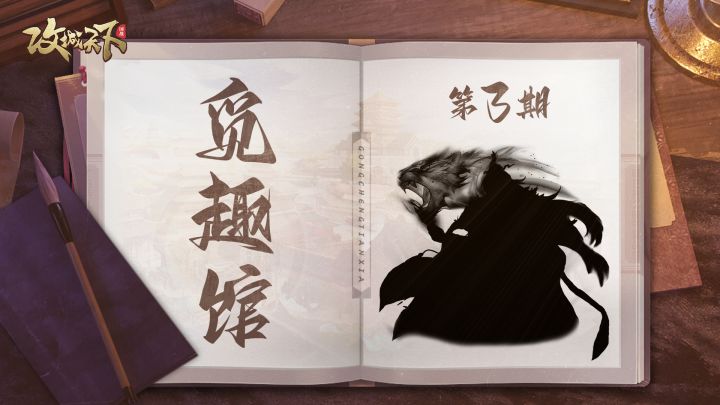 攻城天下
觅趣馆
GONGCHENGTIANXIA
第3期